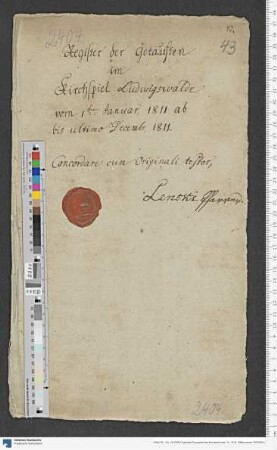 2404
12.
43
Register der Getauften
im
Kirchspiel Ludwigswalde
vom 1ten Januar 1811 ab
bis ultimo Decembr 1811.
Concordare cum Originali testor,
Lenski Pfarrer.
2404